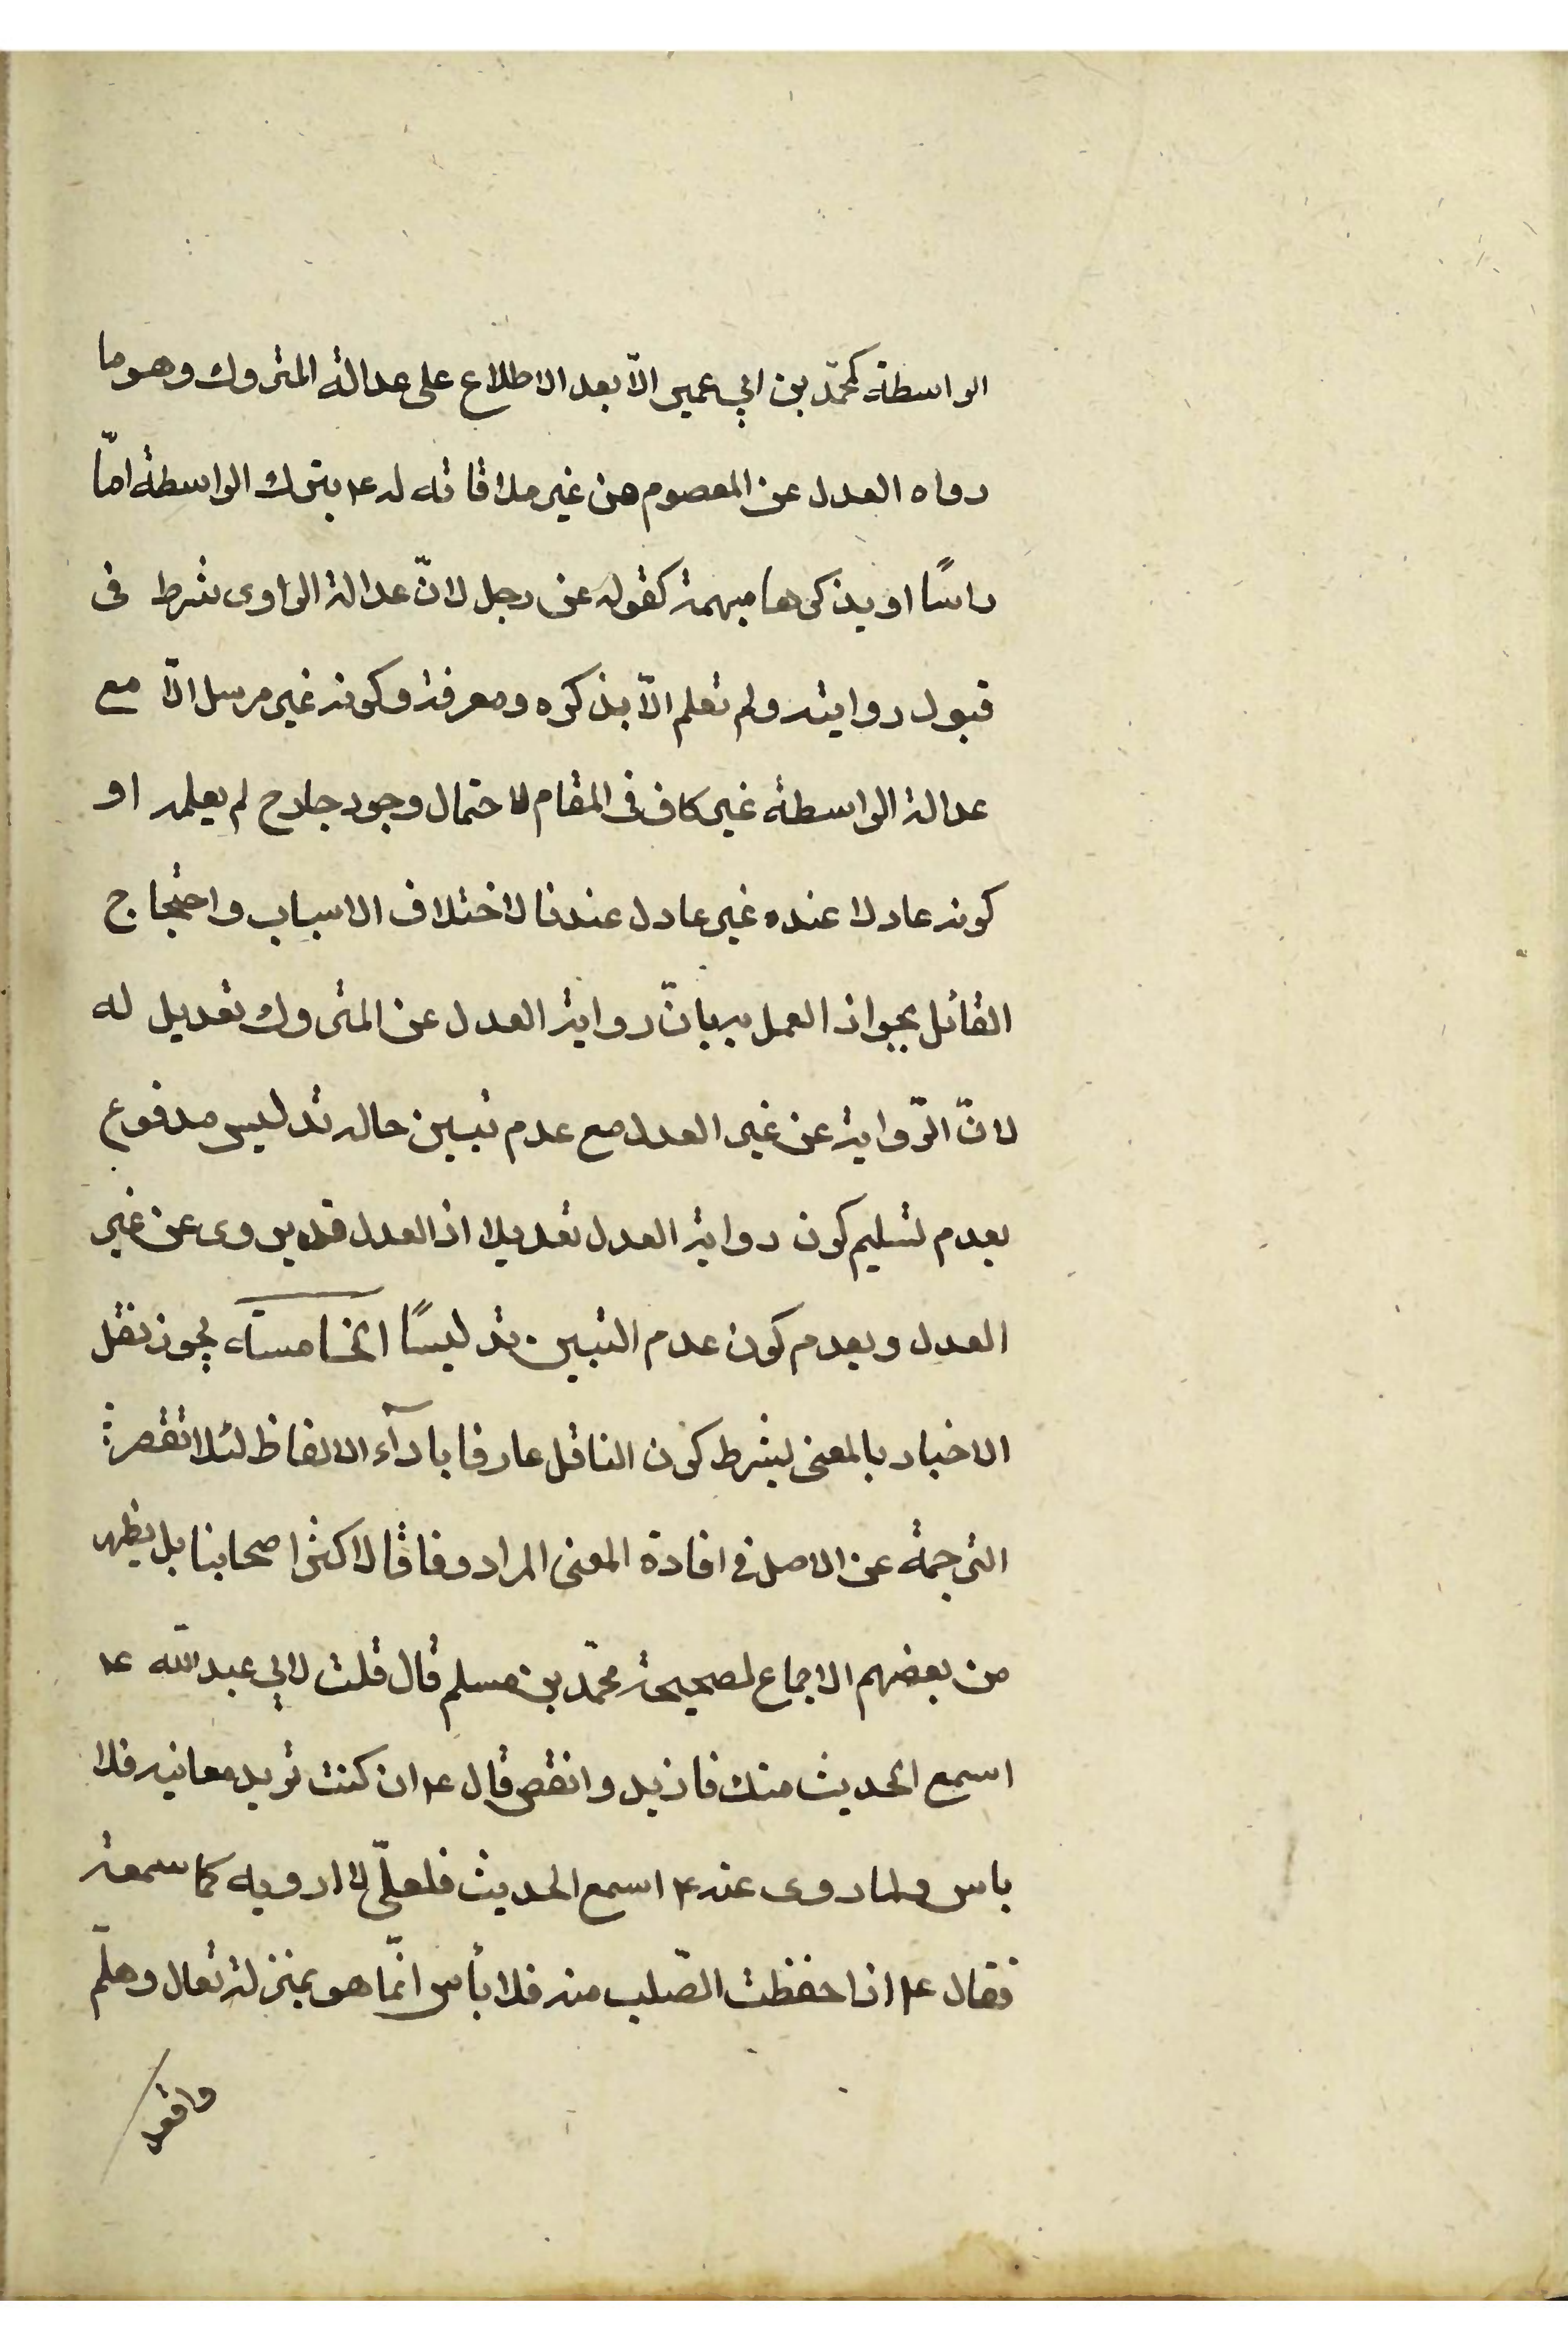 الواسطة كمحمّد بن ابي عمير الّا بعد الاطلاع على عدالة المتروك وهو ما
رواه العدل عن المعصوم من غير ملاقاته له ع بترك الواسطة امّا
راسًا او يذكرها مبهمة كقوله عن رجل لانّ عدالة الراوى شرط فى
قبول روايته ولم تعلم الّا بذكره ومعرفة وكونه غير مرسل الّا مع
عدالة الواسطة غير كاف فى المقام لاحتمال وجود جارح لم يعلمه او
كونه عادلا عنده غير عادل عندنا لاختلاف الاسباب واحتجاج
القائل بجواز العمل به بانّ رواية العدل عن المتروك تعديل له
لانّ الرّواية عن غير العدل مع عدم تبيين حاله تدليس مدفوع
بعدم تسليم كون رواية العدل تعديلا اذ العدل قد يروى عن غير
العدل وبعدم كون عدم التبيين تدليسًا الخامسة يجوز نقل
الاخبار بالمعنى بشرط كون الناقل عارفا بادآء الالفاظ لئلا تقصر
الترجمة عن الاصل فى افادة المعنى المراد وفاقا لاكثر اصحابنا بل يظهر
من بعضهم الاجماع لصحيحة محمّد بن مسلم قال قلت لابي عبد الله ع
اسمع الحديث منك فازيد وانقص قال ع ان كنت تريد معانيه فلا
باس ولما روى عنه ع اسمع الحديث فلعلّي لا ارويه كما سمعته
فقال ع اذا حفظت الصّلب منه فلا بأس انّما هو بمنزلة تعال وهلمّ
واقعد